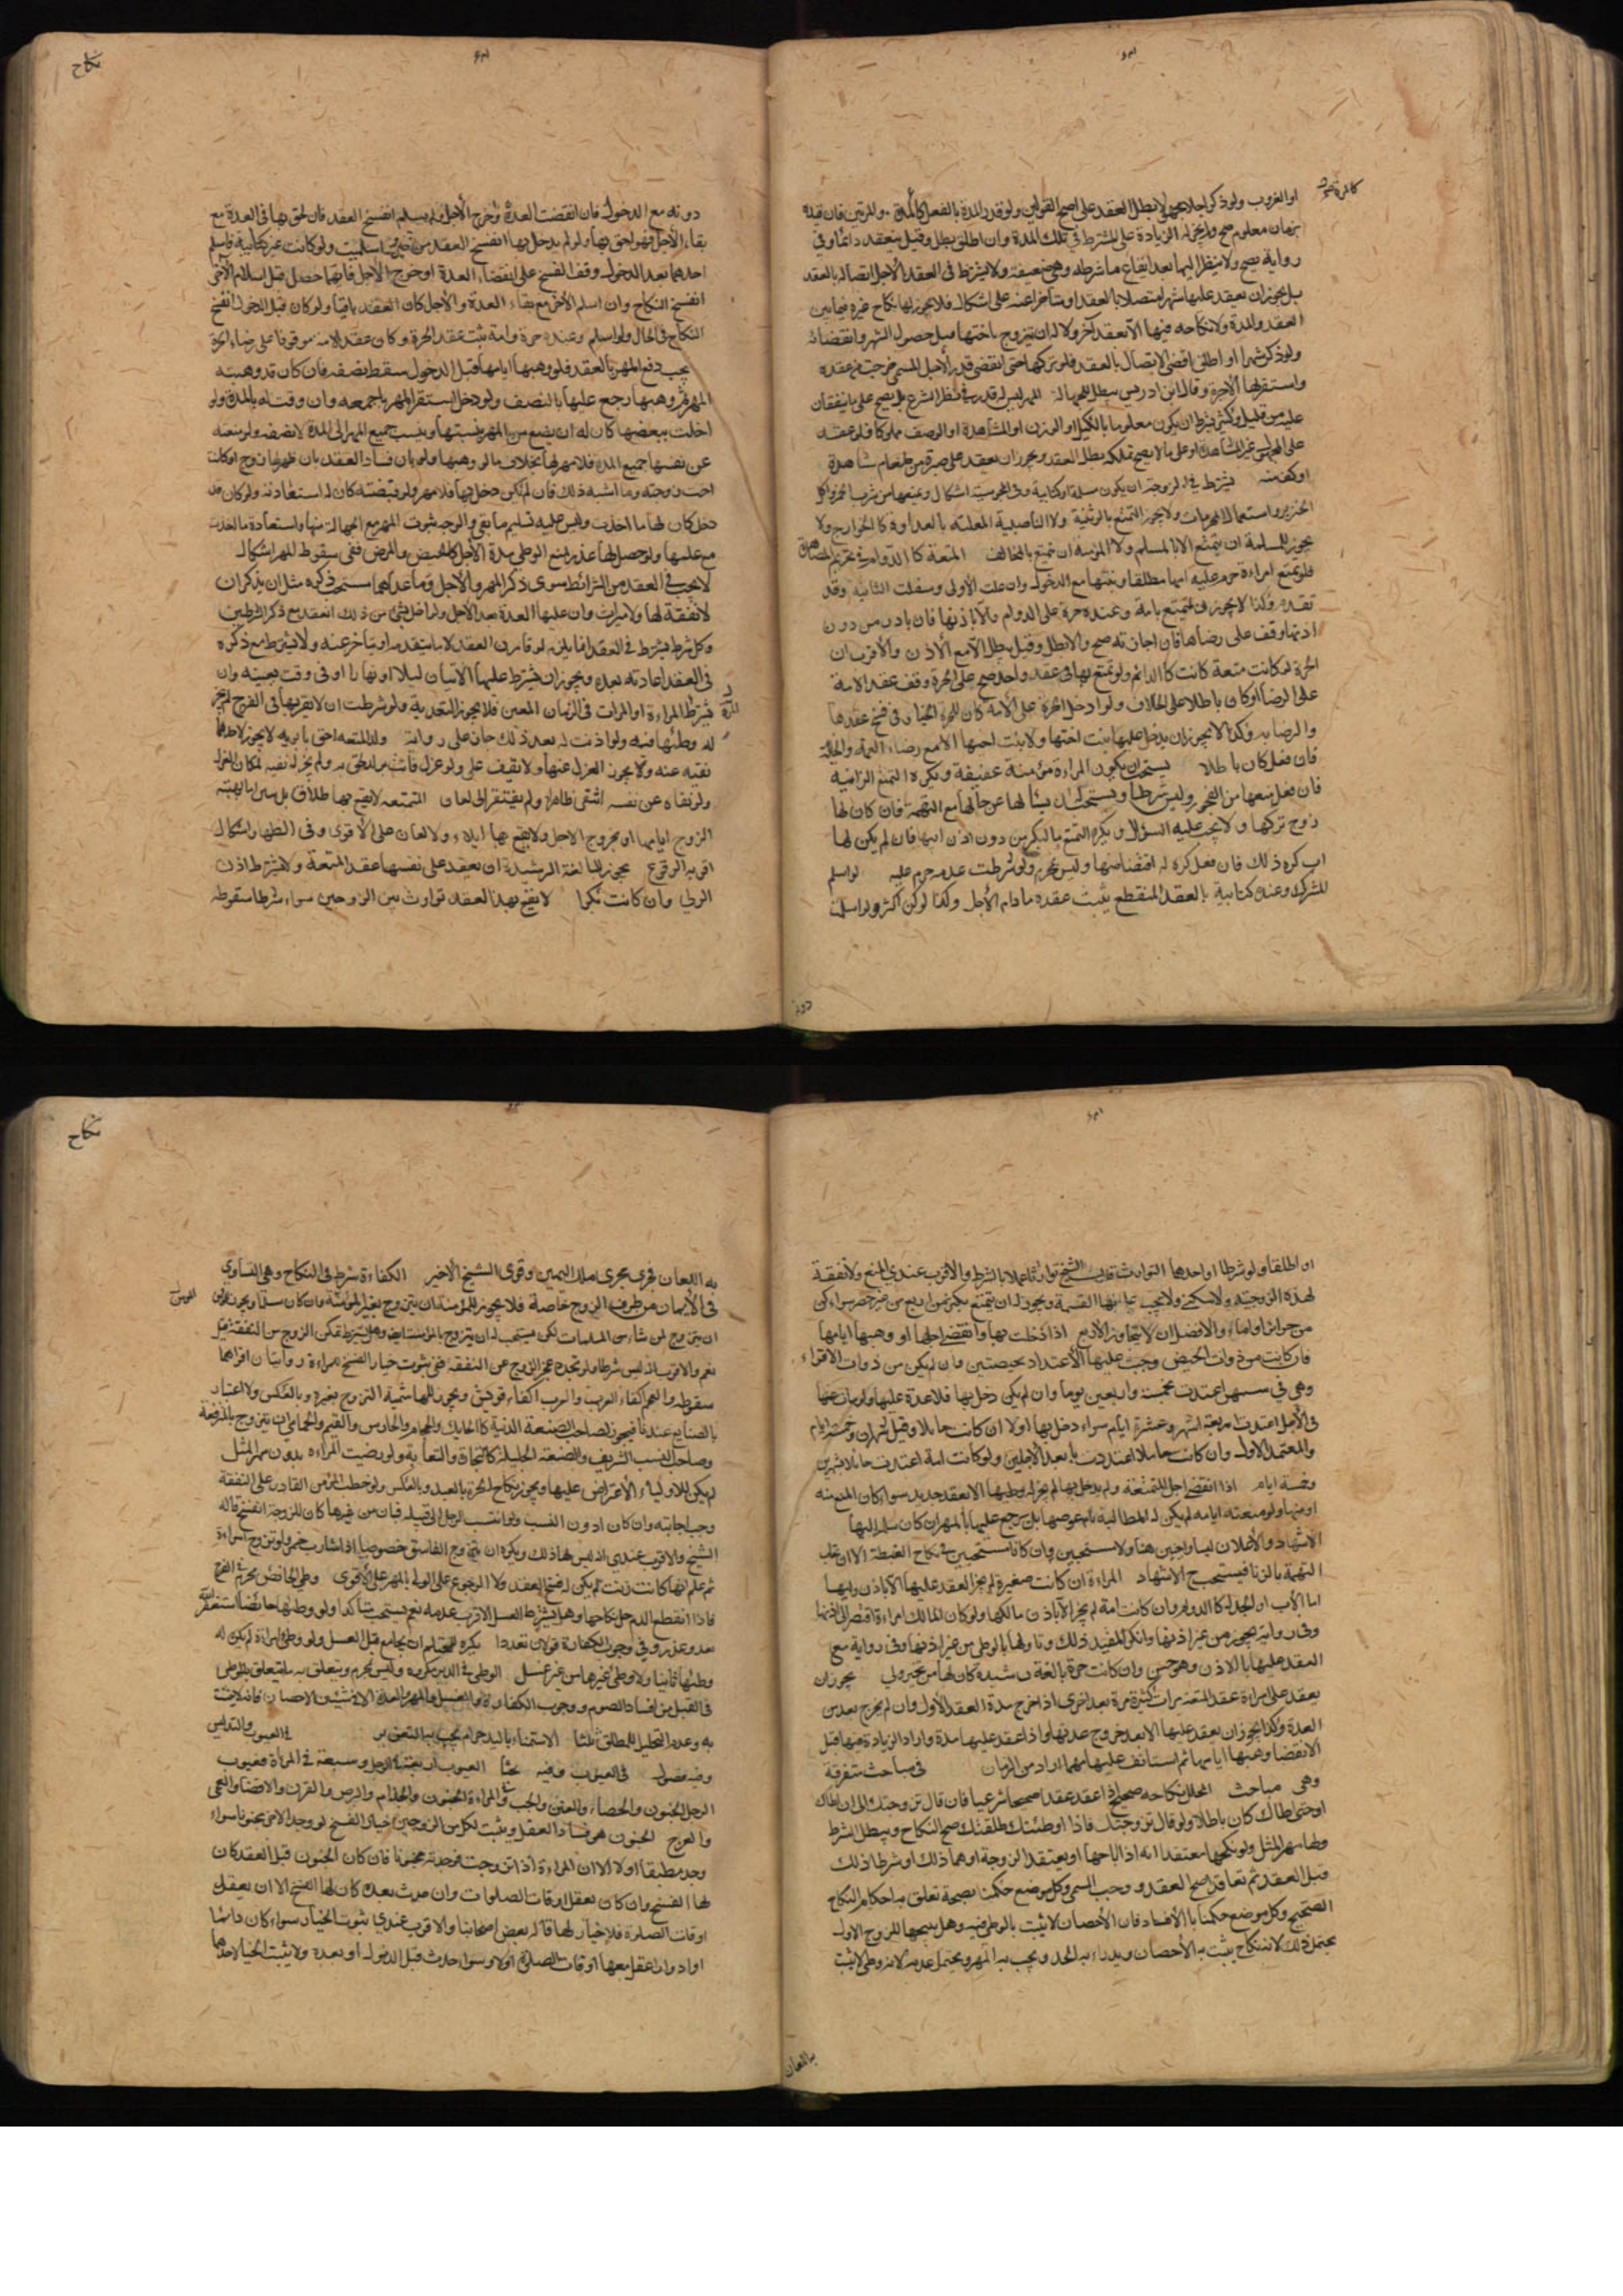 او الغروب ولو ذكر اجلا مجهولا بطل العقد على اصح القولين ولو قدر المدة بالفعل كالمرة والمرتين فان قيده
بزمان معلوم صح ولم يجز له الزيادة على المشترط في تلك المدة وان اطلق بطل وقيل ينعقد دائما وفي
رواية يصح ولا ينظر اليها بعد ايقاع ما شرطه وهي ضعيفة ولا يشترط في العقد الاجل اتصاله بالعقد
بل يجوز ان يعقد عليها شهرا متصلا بالعقد او متاخرا عنه على اشكال فلا يجوز لها نكاح غيره فيما بين
العقد والمدة ولا نكاحه فيها الا بعقد آخر ولا له ان يتزوج باختها قبل حصول الشهر وانقضائه
ولو ذكر شهرا او اطلق اقتضى الاتصال بالعقد فلو تركها حتى انقضى قدر الاجل المسمى خرجت من عقده
واستقر لها الاجرة وقال ابن ادريس يبطل للجهالة المهر ليس له قدر في نظر الشرع بل يصح على ما يتفقان
عليه من قليل وكثير بشرط ان يكون معلوما بالكيل او الوزن او المشاهدة او الوصف مملوكا فلو عقد
على المجلس غير المشاهد او على ما لا يصح تملكه بطل العقد ويجوز ان يعقد على صبرة من طعام شاهدة
او كف منه يشترط في الزوجة ان يكون مسلمة او كتابية وفي المجوسية اشكال ويمنعها من شرب الخمر واكل
الخنزير واستعمال المحرمات ولا يجوز التمتع بالوثنية ولا الناصبية المعلنة بالعداوة كالخوارج ولا
يجوز للمسلمة ان يتمتع الا بالمسلم ولا المؤمنة ان تتمتع بالمخالف المتعة كالدوام في تحريم المصاهرة
فلو تمتع امراءة حرم عليه امها مطلقا وبنتها مع الدخول وان علت الاولى وسفلت الثانية وقد
تقدم وكذا لا يجوز ان يتمتع بامة وعنده حرة على الدوام الا باذنها فان بادر من دون
اذنها وقف على رضاها فان اجازته صح والا بطل وقيل يبطل الا مع الاذن والاقرب ان
الحرة لو كانت متعة كانت كالدائم ولو تمتع بهما في عقد واحد صح على الحرة ووقف عقد الامة
على الرضا او كان باطلا على الخلاف ولو ادخل الحرة على الامة كان للحرة الخيار في فسخ عقدها
والرضا به وكذا لا يجوز ان يدخل عليها بنت اختها ولا بنت اخيها الا مع رضاء العمة والخالة
فان فعل كان باطلا يستحب ان يكون المراءة مؤمنة عفيفة ويكره التمتع الزانية
فان فعل منعها من الفجور وليس شرطا ويستحب ان يسألها عن حالها مع التهمة فان كان لها
زوج تركها ولا يجب عليه السؤال ويكره التمتع بالبكر من دون اذن ابيها فان لم يكن لها
اب كره ذلك فان فعل كره له افتضاضها وليس بمحرم ولو شرطت عدمه حرم عليه لو اسلم
المشرك وعنده كتابية بالعقد المنقطع يثبت عقده مادام الاجل وكذا لو كن اكثر ولو اسلمت
دونه
نكاح
دونه مع الدخول فان انقضت العدة وخرج الاجل فلم يسلم انفسخ العقد فان لحق بها في العدة مع
بقاء الاجل فهو احق بها ولو لم يدخل بها انفسخ العقد من حين اسلمت ولو كانت غير كتابية فاسلم
احدهما بعد الدخول وقف الفسخ على انقضاء العدة او خروج الاجل فايهما حصل قبل اسلام الآخر
انفسخ النكاح وان اسلم الآخر مع بقاء العدة والاجل كان العقد باقيا ولو كان قبل الدخول انفسخ
النكاح في الحال ولو اسلم وعنده حرة وامة ثبت عقد الحرة وكان عقد الامة موقوفا على رضاء الحرة
يجب دفع المهر بالعقد فلو وهبها ايامها قبل الدخول سقط نصفه فان كان قد وهبته
المهر ثم وهبها رجع عليها بالنصف ولو دخل استقر المهر باجمعه وان وفت له بالمدة ولو
اخلت ببعضها كان له ان يضع من المهر بنسبتها وينسب جميع المهر الى المدة لا نصفه ولو منعته
عن نفسها جميع المدة فلا مهر لها بخلاف ما لو وهبها ولو بان فساد العقد بان ظهر لها زوج او كانت
اخت زوجته وما اشبه ذلك فان لم يكن دخل بها فلا مهر ولو قبضته كان له استعادته ولو كان قد
دخل كان لها ما اخذت وليس عليه تسليم ما بقي والوجه ثبوت المهر مع الجهالة منها واستعادة ما اخذت
مع علمها ولو حصل لها عذر يمنع الوطي مدة الاجل كالحيض والمرض ففي سقوط المهر اشكال
لا يجب في العقد من الشرائط سوى ذكر المهر والاجل وما عداهما مستحب ذكره مثل ان يذكر ان
لا نفقة لها ولا ميراث وان عليها العدة بعد الاجل ولو اخل بشئ من ذلك انعقد مع ذكر الشرطين
وكل شرط يشترط في العقد انما يلزم لو قارن العقد لا ما يتقدمه او يتاخر عنه ولا يشترط مع ذكره
في العقد اعادته بعده ويجوز ان يشترط عليها الاتيان ليلا او نهارا او في وقت بعينه وان
يشترط المراءة او المرات في الزمان المعين فلا يجوز التعدية ولو شرطت ان لا يقربها في الفرج لم يجز
له وطئها فيه ولو اذنت له بعد ذلك جاز على رواية ولد المتعة لاحق بابويه لا يجوز لاحدهما
نفيه عنه ولا يجوز العزل عنها ولا يقف على ولو عزل فاتت بولد لحق به ولم يجز له نفيه لمكان العزل
ولو نفاه عن نفسه انتفى ظاهرا ولم يفتقر الى لعان المتمتعه لا يقع بها طلاق بل تبين اما بهبته
الزوج ايامها او بخروج الاجل ولا يقع بها ايلاء ولا لعان على الاقوى وفي الظهار اشكال
اقربه الوقوع يجوز للبالغة الرشيدة ان يعقد على نفسها عقد المتعة ولا يشترط اذن
الولي وان كانت بكرا لا يقع بهذا العقد توارث بين الزوجين سواء شرطا سقوطه
او اطلقا ولو شرطا او احدهما التوارث قال الشيخ توارثا عملا بالشرط والاقرب عندي المنع ولا نفقة
لهذه الزوجة ولا سكنى ولا يجب عليه لها القسمة ويجوز له ان يتمتع باكثر من اربع من غير حصر سواء كن
من حرائر او اماء والافضل ان لا يتجاوز الاربع اذا دخلت بها وانقضى اجلها او وهبها ايامها
فان كانت من ذوات الحيض وجبت عليها الاعتداد بحيضتين وان لم يكن من ذوات الاقراء
وهي في سنهن اعتدت بخمسة واربعين يوما وان لم يكن دخل بها فلا عدة عليها ولو مات عنها
في الاجل اعتدت باربعة اشهر وعشرة ايام سواء دخل بها او لا ان كانت حايلا وقيل شهران وخمسة ايام
والمعتمد الاول وان كانت حاملا اعتدت بابعد الاجلين ولو كانت امة اعتدت حائلا بشهرين
وخمسة ايام اذا انقضى اجل المتمتعة ولم يدخل بها لم يجز له وطيها الا بعقد جديد سواء كان المنع منه
او منها ولو منعته ايامه لم يكن له المطالبة بايام عوضها بل يرجع عليها بالمهر ان كان سلم اليها
الاشهاد والاعلان ليسا واجبين هنا ولا مستحبين وان كانا مستحبين في نكاح الغبطة الا ان يخاف
التهمة بالزنا فيستحب الاشهاد المراءة ان كانت صغيرة لم يجز العقد عليها الا باذن وليها
اما الاب او الجد كالدوام وان كانت امة لم يجز الا باذن مالكها ولو كان المالك امراءة افتقر الى اذنها
وفي رواية يجوز من غير اذنها وانكر المفيد ذلك وتاولها بالوطي من غير اذنها وفي رواية منع
العقد عليها الا بالاذن وهو حسن وان كانت حرة بالغة رشيدة كان لها من غير ولي يجوز ان
يعقد على امراءة عقد المتعة مرات كثيرة مرة بعد اخرى اذا خرج مدة العقد الاول وان لم يخرج بعد من
العدة وكذا لا يجوز ان يعقد عليها الا بعد خروج عدتها واذا عقد عليها مدة واراد الزيادة منها قبل
الانقضا وهبها ايامها ثم استانف عليها مهما اراد من الزمان في مباحث متفرقة
وهي مباحث المحلل نكاحه صحيح اذا عقد عقدا صحيحا شرعيا فان قال تزوجتك الى ان اطاك
او حتى اطاك كان باطلا ولو قال تزوجتك فاذا اوطئتك طلقتك صح النكاح ويبطل الشرط
ولها مهر المثل ولو نكحها معتقدا انه اذا اباحها او يعتقد الزوجة او هما ذلك او شرطا ذلك
قبل العقد ثم تعاقدا صح العقد ووجب المسمى وكل موضع حكمنا بصحة تعلق به احكام النكاح
الصحيح وكل موضع حكمنا بالافساد فان الاحصان لا يثبت بالوطي فيه وهل يبيحها للزوج الاول
يحتمل ذلك لانه نكاح يثبت به الاحصان ويدراء به الحد ويجب به المهر ويحتمل عدمه لانه وطي لا يثبت
به اللعان
نكاح
به اللعان فجرى مجرى ملك اليمين وقوى الشيخ الاخير الكفاءة شرط في النكاح وهي التساوي
في الايمان من طرف الزوج خاصة فلا يجوز للمؤمنة ان يتزوج بغير المؤمن وان كان مسلما ويجوز للمؤمن
ان يتزوج لمن شاء من المسلمات لكن يستحب له ان يتزوج بالمؤمنة ايضا وهل يشترط تمكن الزوج من النفقة قيل
نعم والاقرب انه ليس شرطا ولو تجدد عجز الزوج عن النفقة ففي ثبوت خيار الفسخ للمراءة روايتان اقربهما
سقوطه والعجم اكفاء العرب والعرب اكفاء قريش ويجوز للهاشمية التزوج بغيره وبالعكس ولا اعتبار
بالصنايع عندنا فيجوز لصاحب الصنعة الدنية كالحايك والحجام والحارس والقيم والحمامي ان يتزوج بالمرتفعة
وصاحب النسب الشريف والصنعة الجليلة كالتجارة والنقابة ولو رضيت المراءة بدون مهر المثل
لم يكن للاولياء الاعتراض عليها ويجوز نكاح الحرة بالعبد وبالعكس ولو خطب المؤمن القادر على النفقة
وجب اجابته وان كان ادون النسب ولو انتسب الرجل الى قبيلة فبان من غيرها كان للزوجة الفسخ قاله
الشيخ والاقرب عندي انه ليس لها ذلك ويكره ان يتزوج الفاسق خصوصا اذا شارب خمر ولو تزوج امراءة
ثم علم انها كانت زنت لم يكن له فسخ العقد ولا الرجوع على الولي بالمهر على الاقوى وطي الحائض محرم في الفرج
فاذا انقطع الدم حل نكاحها وهل يشترط الغسل الاقرب عدمه نعم يستحب متاكدا ولو وطئها حائضا استغفر الله
تعد وعذر وفي وجوب الكفارة قولان تقددا يكره للمحتلم ان يجامع قبل الغسل ولو وطي امراءة لم يكن له
وطئها ثانيا ولا وطي غيرها من غير غسل الوطي في الدبر مكروه وليس بمحرم ويتعلق به ما يتعلق بالوطي
في القبل من افساد الصوم ووجوب الكفارة والغسل والمهر والعدة الا في شيئين الاحصان فانه لا يثبت
به وعدم التحليل للمطلق ثلاثا الاستمناء باليد حرام يجب به التعزير في العيوب والتدليس
وفيه فصول في العيوب وفيه بحثا العيوب اربعة في الرجل وسبعة في المرأة فعيوب
الرجل الجنون والخصاء والعنن والجب والمراءة الجنون والجذام والبرص والقرن والافضا والعمى
والعرج الجنون هو فساد العقل ويثبت لكل من الزوجين خيار الفسخ لو وجد الآخر مجنونا سواء
وجد مطبقا او لا الا ان المراءة اذا تزوجت فوجدته مجنونا فان كان الجنون قبل العقد كان
لها الفسخ وان كان يعقل اوقات الصلوات وان حدث بعده كان لها الفسخ الا ان يعقل
اوقات الصلوة فلا خيار لها قاله بعض اصحابنا والاقرب عندي ثبوت الخيار سواء كان دائما
او ادوارا عقل معها اوقات الصلوة او لا وسواء حدث قبل الدخول او بعده ولا يثبت الخيار لاحدهما